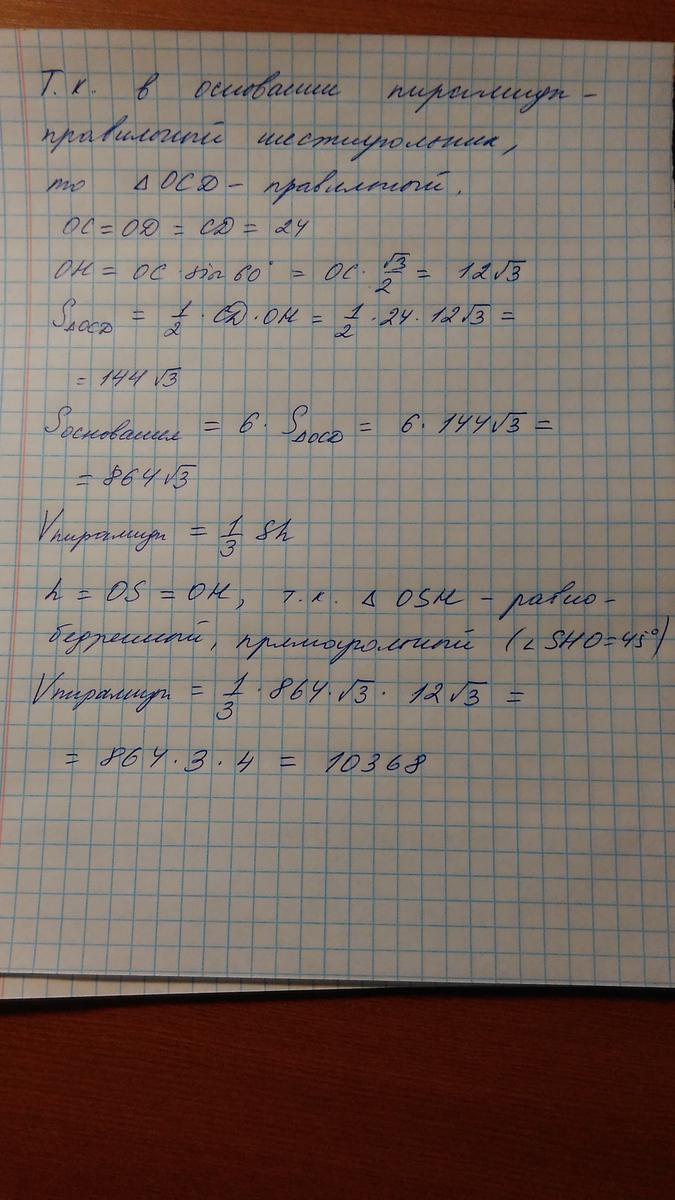 Т.к. в основании пирамиды -
правильный шестиугольник,
то △OCD - правильный.
OC = OD = CD = 24
OH = OC · sin 60° = OC · √3/2 = 12√3
S△OCD = 1/2 · CD · OH = 1/2 · 24 · 12√3 =
= 144√3
Sоснования = 6 · S△OCD = 6 · 144√3 =
= 864√3
Vпирамиды = 1/3 Sh
h = OS = OH, т.к. △ OSH - равно-
бедренный, прямоугольный (∠SHO=45°)
Vпирамиды = 1/3 · 864 · √3 · 12√3 =
= 864 · 3 · 4 = 10368